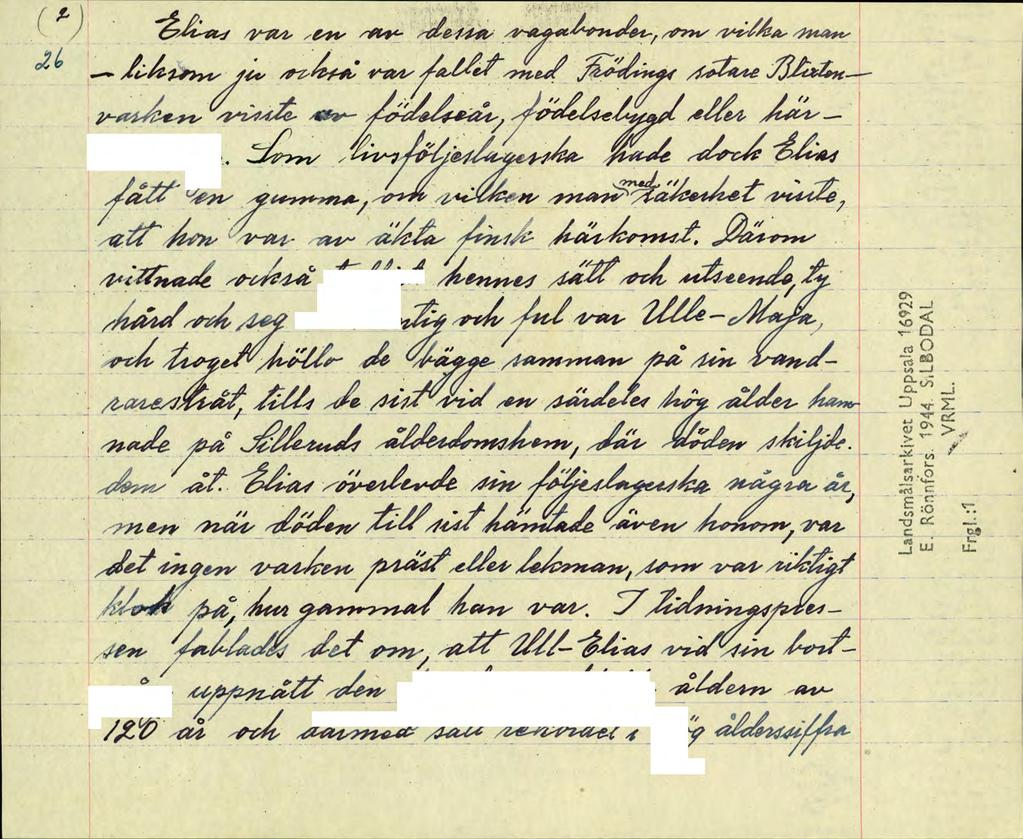 (2)
26
Elias var en av dessa vagabonder, om vilka man
– liksom ju också var fallet med Frödings sotare Blixten –
varken visste av födelseår, födelsebygd eller här-
. Som livsföljeslagerska hade dock Elias
fått en gumma, om vilken man med säkerhet visste,
att hon var av äkta finsk härkomst. Därom
vittnade också hennes sätt och utseende, ty
hård och seg och ful var Ulle-Maja,
och troget höllo de bägge samman på sin vand-
rarestråt, tills de sist vid en särdeles hög ålder ham-
nade på Silleruds ålderdomshem, där döden skiljde
dem åt. Elias överlevde sin följeslagerska några år,
men när döden till sist hämtade även honom, var
det ingen varken präst eller lekman, som var riktigt
klok på, hur gammal han var. I tidningspres-
sen fablades det om, att Ull-Elias vid sin bort-
uppnått den åldern av
120 år och därmed satt rekordet i ålderssiffra
Landsmålsarkivet Uppsala 16929
E. Rönnfors. 1944. SILBODAL
VRML.
Frgl.:1